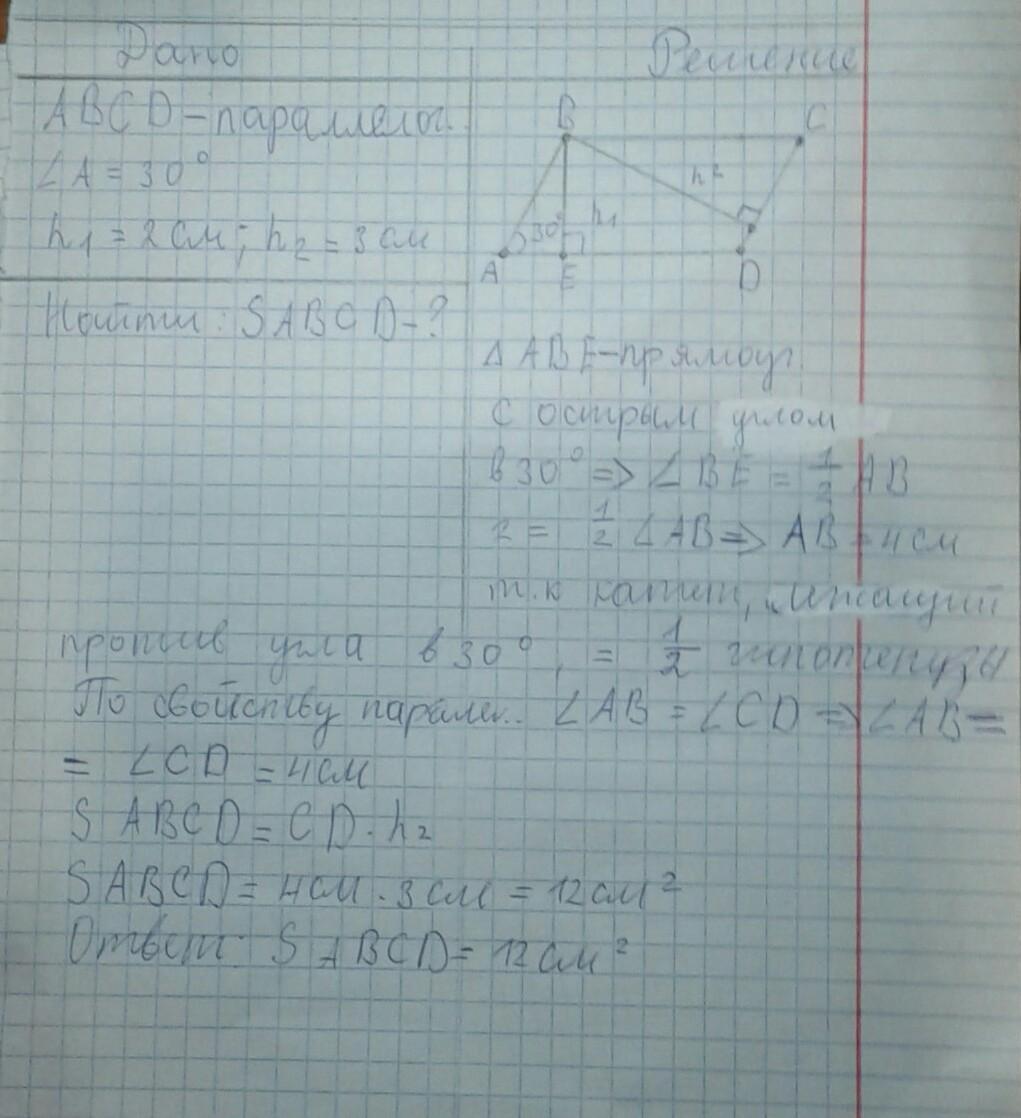 Дано Решение
ABCD – параллелог.
∠A = 30°
h₁ = 2 см; h₂ = 3 см
Найти: SABCD – ?
B C
h²
30° h₁
A E D
△ ABE – прямоуг.
с острым углом
в 30° => ∠BE = 1/2 AB
2 = 1/2 ∠AB => AB = 4 см
т.к катет, лежащий
против угла в 30°, = 1/2 гипотенузы
По свойству паралл.. ∠AB = ∠CD => ∠AB =
= ∠CD = 4 см
S ABCD = CD · h₂
SABCD = 4 см · 3 см = 12 см²
Ответ: S ABCD = 12 см²